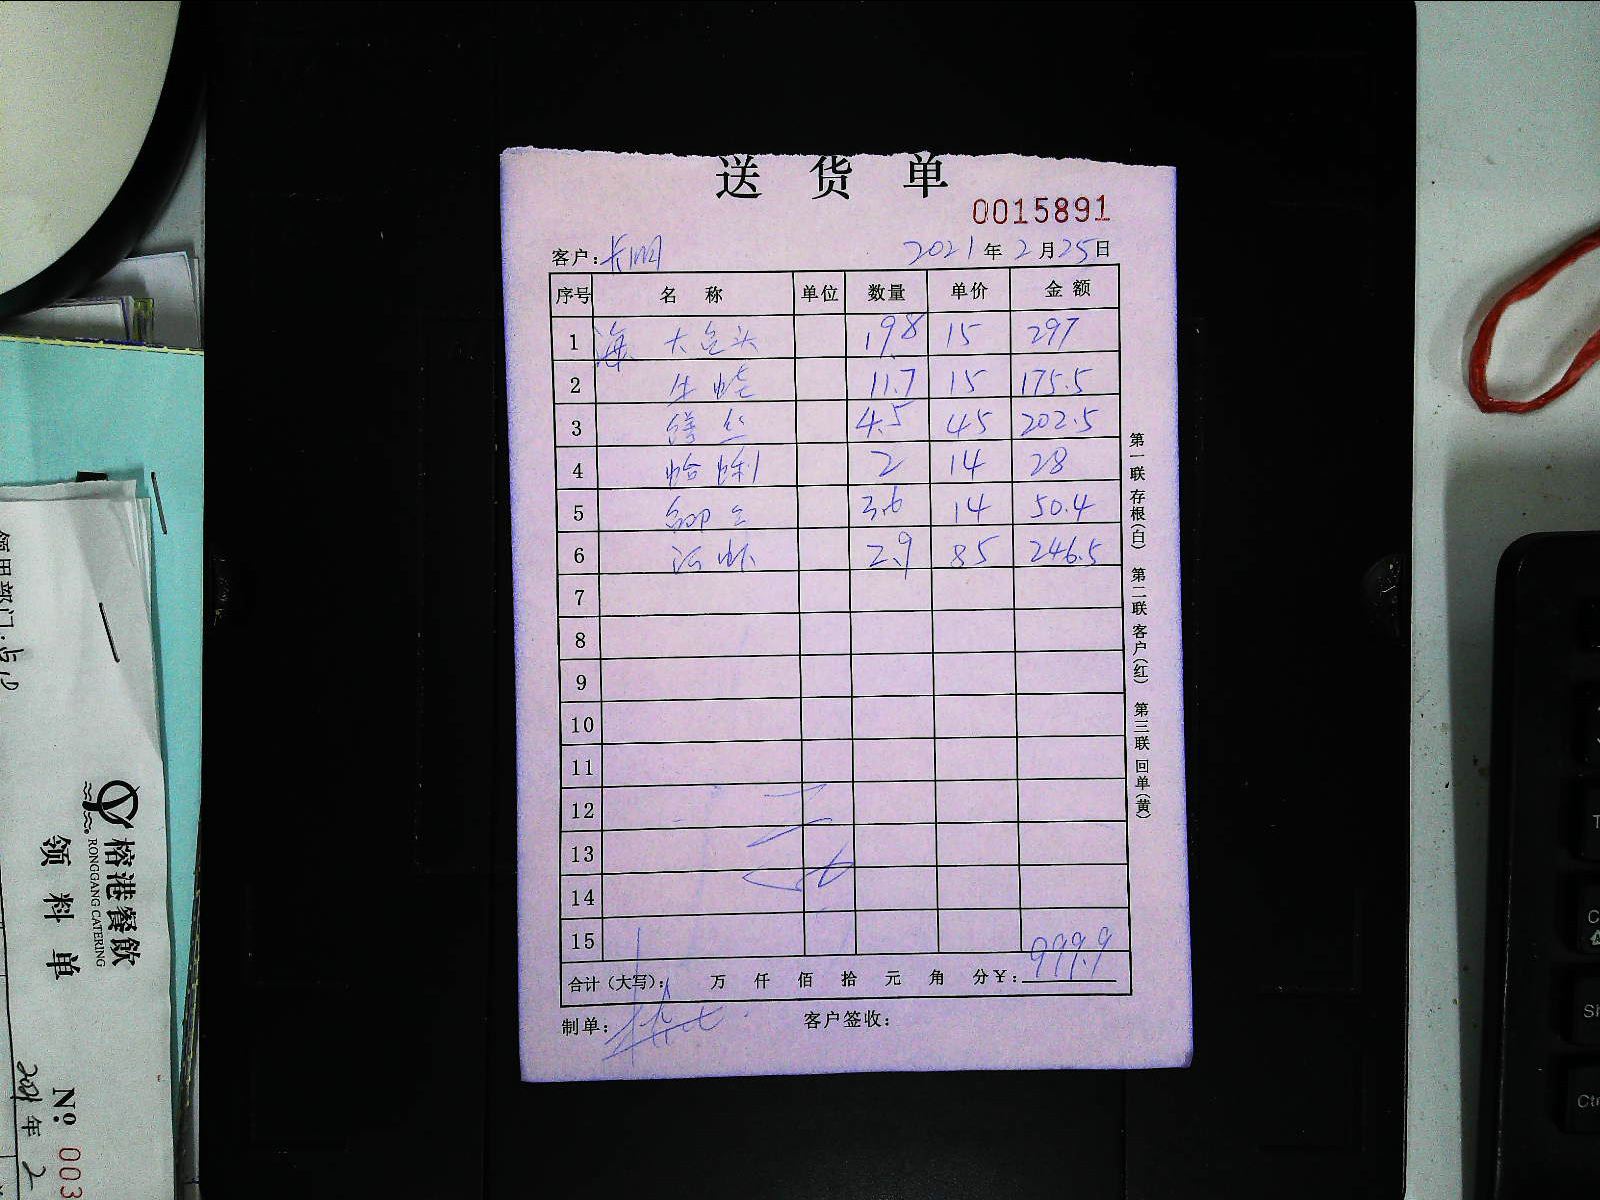 送货单
0015891
客户: 长明 2021年2月25日
序号 名称 单位 数量 单价 金额
1 海 大包头 19.8 15 297
2 牛蛙 11.7 15 175.5
3 4.5 45 202.5
4 蛤蜊 2 14 28
5 3.6 14 50.4
6 2.9 85 246.5
7
8
9
10
11
12
13
14
15
合计(大写): 万 仟 佰 拾 元 角 分 ¥: 999.9
制单: 客户签收:
第一联 存根(白) 第二联 客户(红) 第三联 回单(黄)
榕港餐飲
RONGGANG CATERING
领料单
№ 003
2021年2